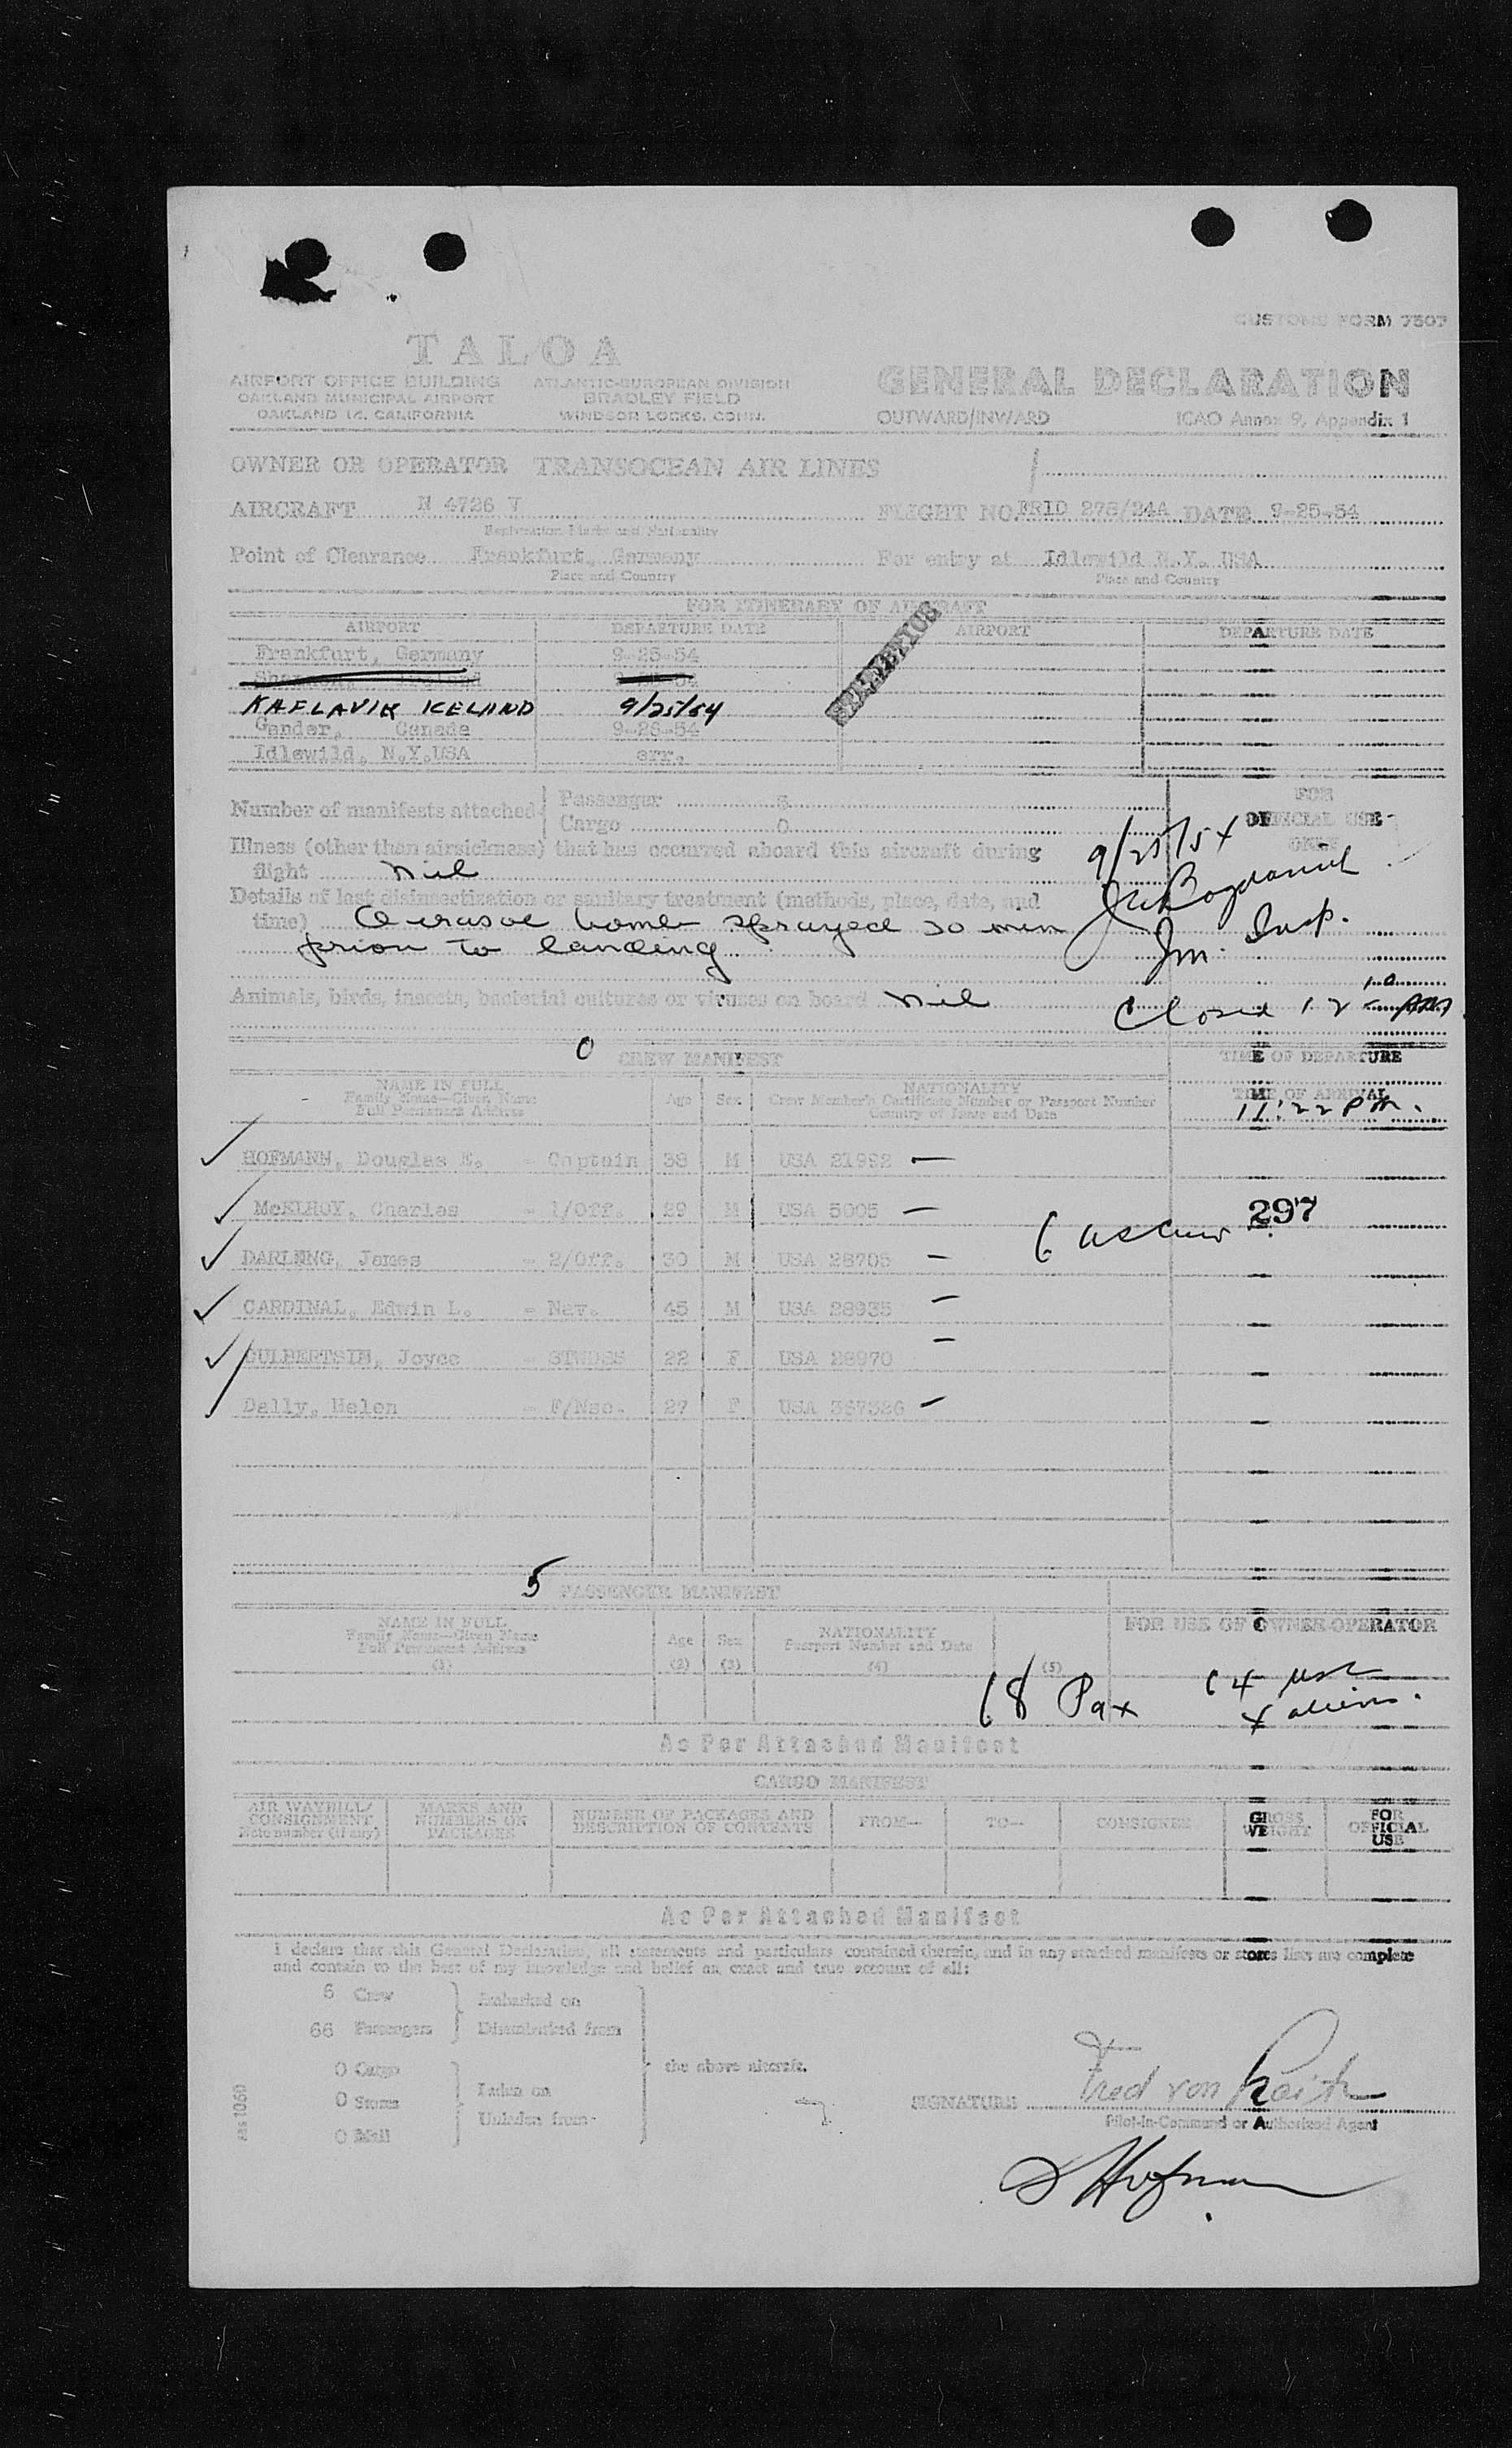 CUSTOMS FORM 7507
TALOA
AIRPORT OFFICE BUILDING
OAKLAND MUNICIPAL AIRPORT
OAKLAND 14, CALIFORNIA
ATLANTIC-EUROPEAN DIVISION
BRADLEY FIELD
WINDSOR LOCKS, CONN.
GENERAL DECLARATION
OUTWARD/INWARD ICAO Annex 9, Appendix 1
OWNER OR OPERATOR TRANSOCEAN AIR LINES
AIRCRAFT N 4726 V FLIGHT NO. FRID 278/24A DATE 9-25-54
Registration Marks and Nationality
Point of Clearance Frankfurt, Germany For entry at Idlewild N.Y. USA
Place and Country Place and Country
FOR ITINERARY OF AIRCRAFT
AIRPORT DEPARTURE DATE AIRPORT DEPARTURE DATE
Frankfurt, Germany 9-25-54
KAFLAVIK ICELAND 9/25/54
Gander, Canada 9-26-54
Idlewild, N.Y.USA arr.
Number of manifests attached Passenger 3
Cargo 0
FOR OFFICIAL USE ONLY
Illness (other than airsickness) that has occurred aboard this aircraft during
flight Nil
9/25/54
Details of last disinsectization or sanitary treatment (methods, place, date, and
time) Aerasoe bomb sprayed 30 min
prior to landing
Im. Insp.
Animals, birds, insects, bacterial cultures or viruses on board Nil
Closed 12 10 AM
0 CREW MANIFEST
TIME OF DEPARTURE
NAME IN FULL
Family Name—Given Name
Full Permanent Address
Age Sex
NATIONALITY
Crew Member's Certificate Number or Passport Number
Country of Issue and Date
TIME OF ARRIVAL
11:22 PM.
HOFMANN, Douglas E. - Captain 38 M USA 21992
McELROY, Charles - 1/Off. 29 M USA 5005
297
DARLENG, James - 2/Off. 30 M USA 28705
CARDINAL, Edwin L. - Nav. 45 M USA 28935
CULBERTSIN, Joyce - STWDSS 22 F USA 28970
Dally, Helen - F/Nse. 27 F USA 367326
5 PASSENGER MANIFEST
NAME IN FULL
Family Name—Given Name
Full Permanent Address
(1)
Age
(2)
Sex
(3)
NATIONALITY
Passport Number and Date
(4)
(5)
FOR USE OF OWNER-OPERATOR
68 Pax
64 USC
4 aliens.
As Per Attached Manifest
CARGO MANIFEST
AIR WAYBILL/
CONSIGNMENT
Note number (if any)
MARKS AND
NUMBERS ON
PACKAGES
NUMBER OF PACKAGES AND
DESCRIPTION OF CONTENTS
FROM—
TO—
CONSIGNEE
GROSS
WEIGHT
FOR
OFFICIAL
USE
As Per Attached Manifest
I declare that this General Declaration, all statements and particulars contained therein, and in any attached manifests or stores lists are complete
and contain to the best of my knowledge and belief an exact and true account of all:
6 Crew
66 Passengers
Embarked on
Disembarked from
0 Cargo
0 Stores
0 Mail
Laden on
Unladen from
the above aircraft.
SIGNATURE Fred von
Pilot-in-Command or Authorized Agent